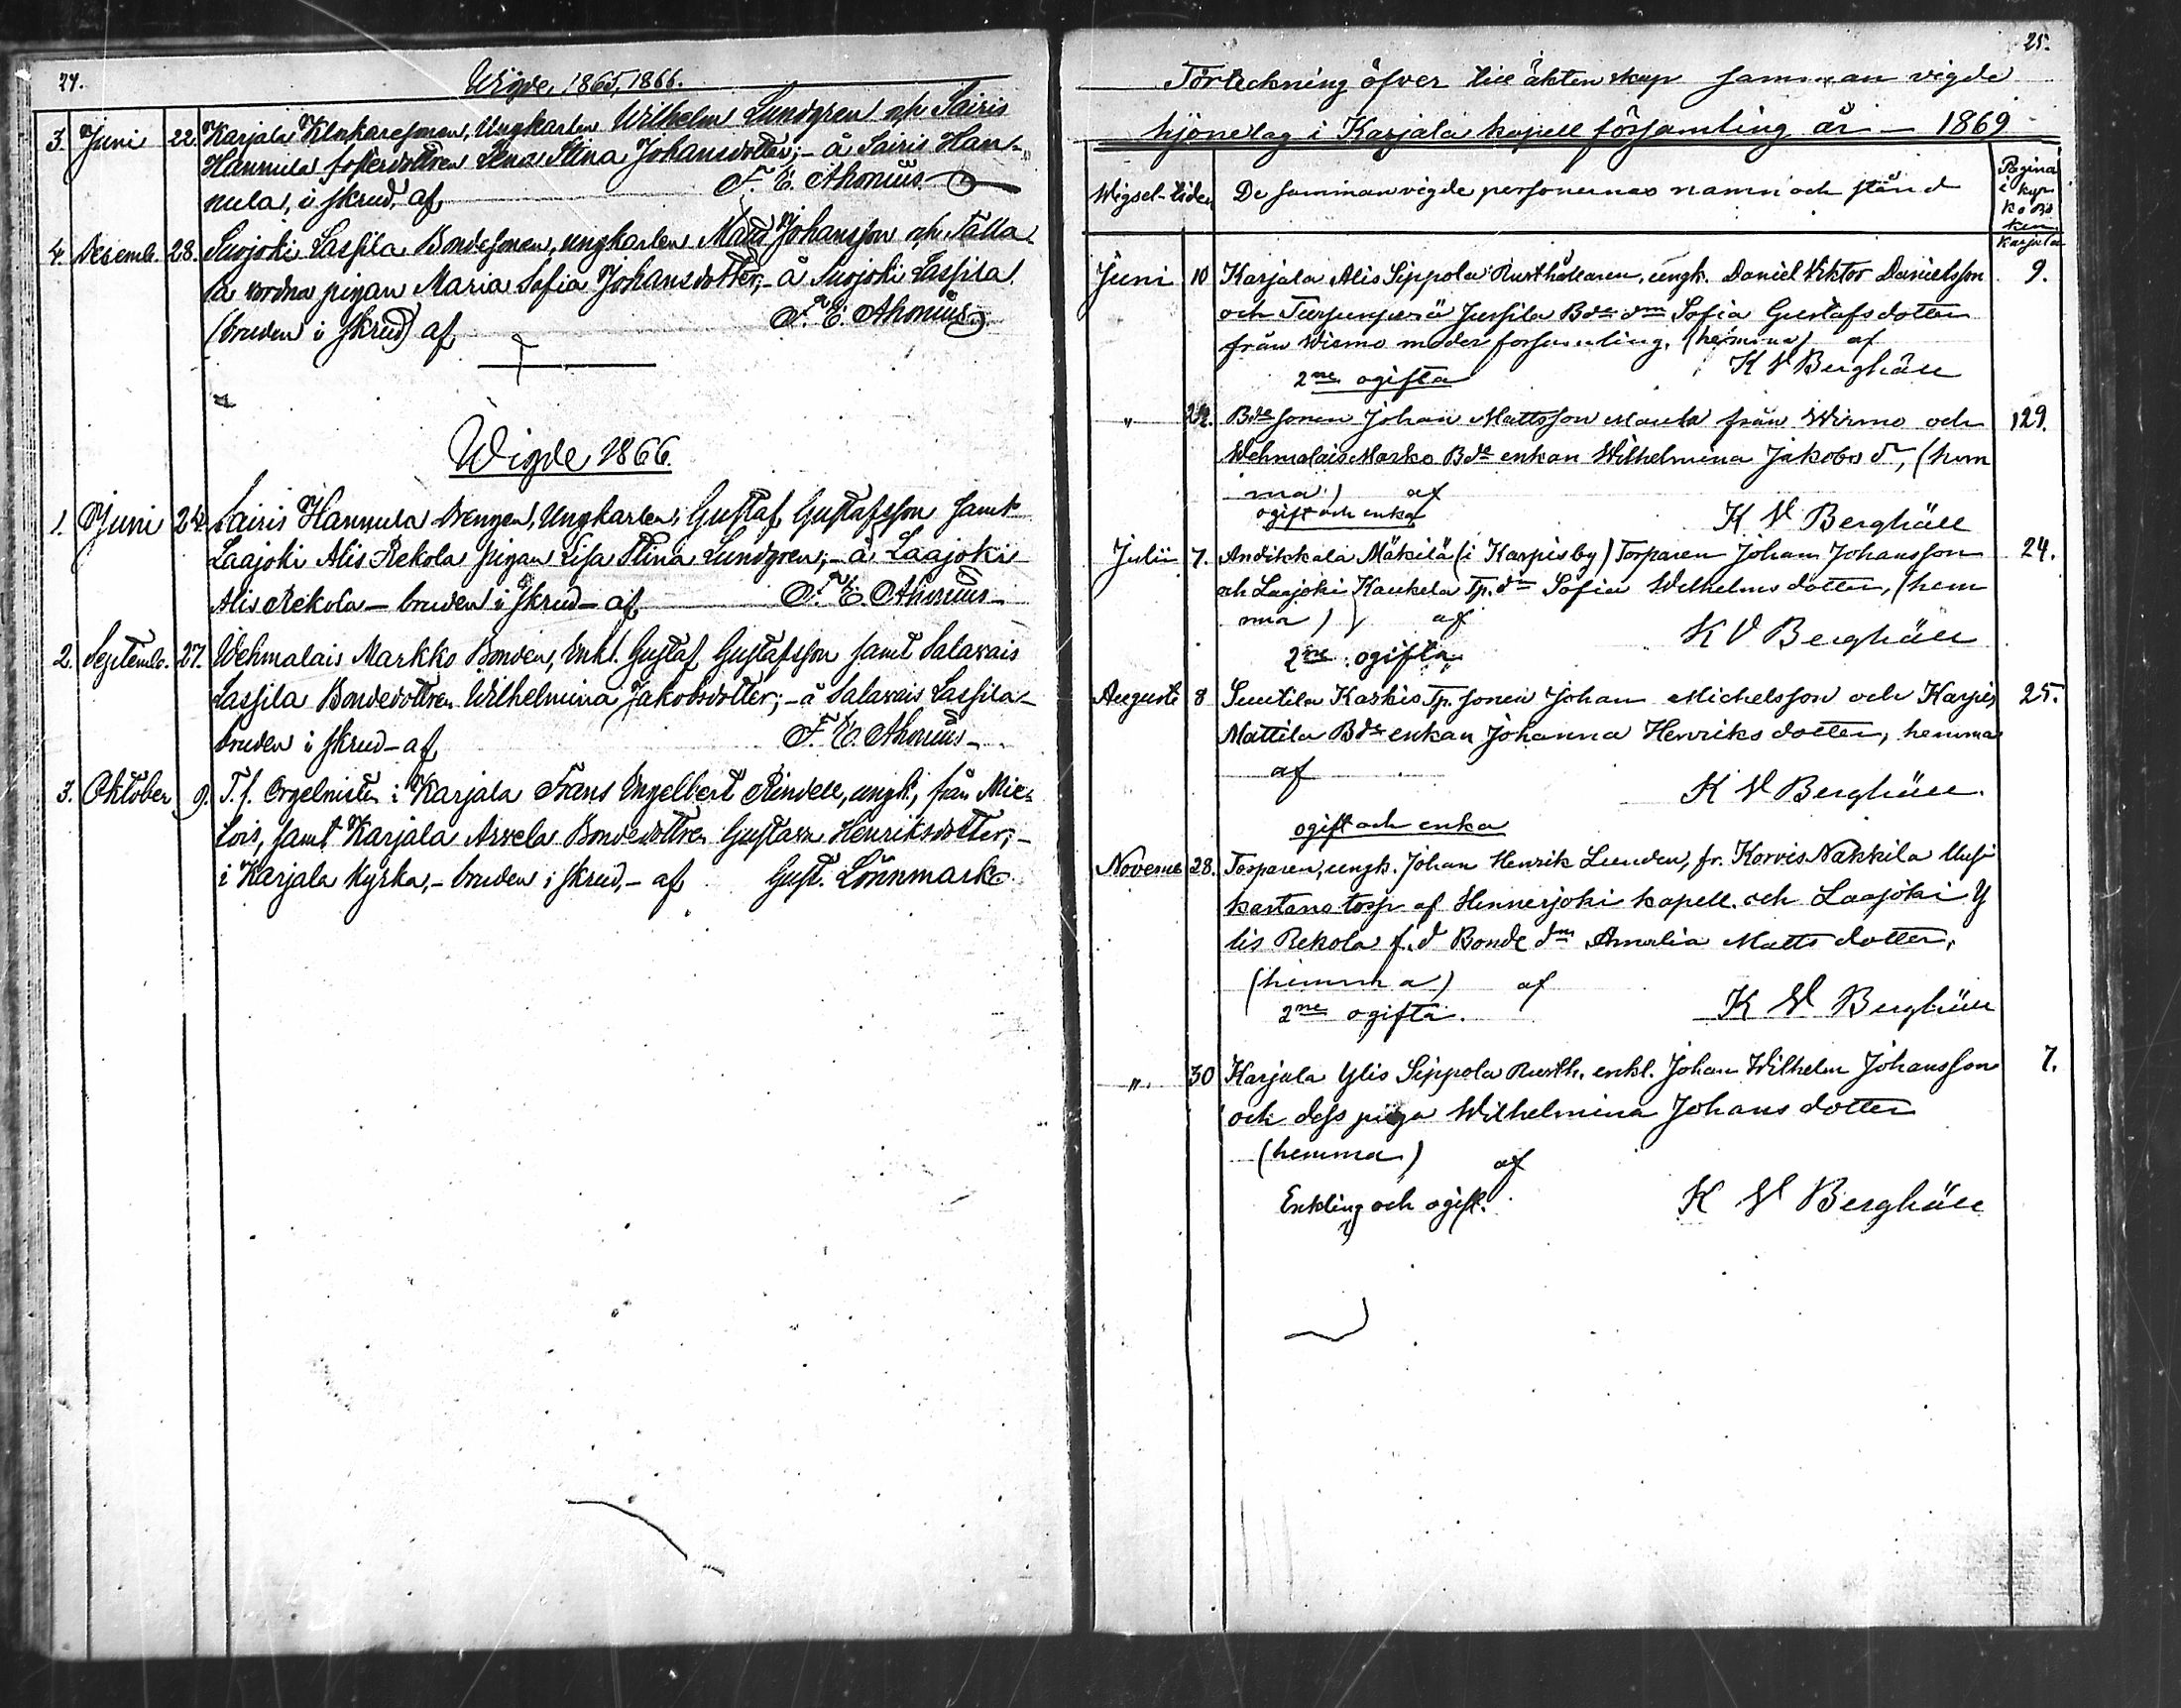 24.
Wigde, 1865, 1866.
3. Juni 22. Karjala Klockaresonen, Ungkarlen Wilhelm Lundgren och Sairis
Hannula Lena Stina Johansdotter; - å Sairis Han-
nula, i skrud, af F. E. Ahonius
4. Decemb. 28. Suojoki Lassila Bondesonen, ungkarlen Matts Johansson och Talla
Maria Sofia Johansdotter, - å Suojoki Lassila.
(bruden i skrud) af F. E. Ahonius
Wigde 1866.
1. Juni 24. Sairis Hannula Drengen, Ungkarlen, Gustaf Gustafsson samt
Laajoki Alis Rekola pigan Lisa Stina Lundgren; - å Laajoki
Alis Rekola - bruden i skrud - af F. E. Ahonius
2. Septemb. 27. Wehmalais Markko Bonden, Enkl. Gustaf Gustafsson samt Salavais
Lassila Bondedottren Wilhelmina Jakobsdotter; - å Salavais Lassila -
bruden i skrud - af F. E. Ahonius
3. Oktober 9. T. f. Orgelnisten i Karjala Frans Engelbert Rindell, ungk., från Mie-
tois, samt Karjala Arvela Bondedottren Gustava Henriksdotter; -
i Karjala Kyrka, - bruden i skrud, - af Gust. Lönnmark
25.
Förteckning öfver till äktenskap samman vigde
hjonelag i Karjala kapell församling år - 1869
Wigsel-tiden De sammanvigde personernas namn och stånd
Pagina
i kyr
ko bö
ken
Karjala
Juni 10 Karjala Alis Sippola Rusthållaren, ungk. Daniel Viktor Danielsson 9.
och Jussila Bde dm Sofia Gustafsdotter
från Wirmo moderförsamling. (hemma) af
K V Berghäll
2ne ogifta
" 24. Bde sonen Johan Mattsson från Wirmo och 129.
Wehmalais Marko Bde enkan Wilhelmina Jakobs dr, (hem
ma) af
ogift och enka K V Berghäll
Julii 7. Andikkala Mäkilä (i Karpisby) Torparen Johan Johansson 24.
och Laajoki Kaukela Tp. dn Sofia Wilhelmsdotter, (hem
ma) af
K V Berghäll
2ne ogifta
Augusti 8 Suutila Kaskis Tp. sonen Johan Michelsson och Karpis 25.
Mattila Bde enkan Johanna Henriksdotter, hemma
af
K V Berghäll
ogift och enka
Novem 28. Torparen, ungk. Johan Henrik Lunden, fr. Korvis Nakkila Uusi
kartano torp af Hinnerjoki kapell. och Laajoki Y
lis Rekola f. d Bonde dm Amalia Mattsdotter,
(hemma) af
K V Berghäll
2ne ogifta.
" 30 Karjala Ylis Sippola Rusth. enkl. Johan Wilhelm Johansson 7.
och dess piga Wilhelmina Johansdotter
(hemma) af
Enkling och ogift. K V Berghäll